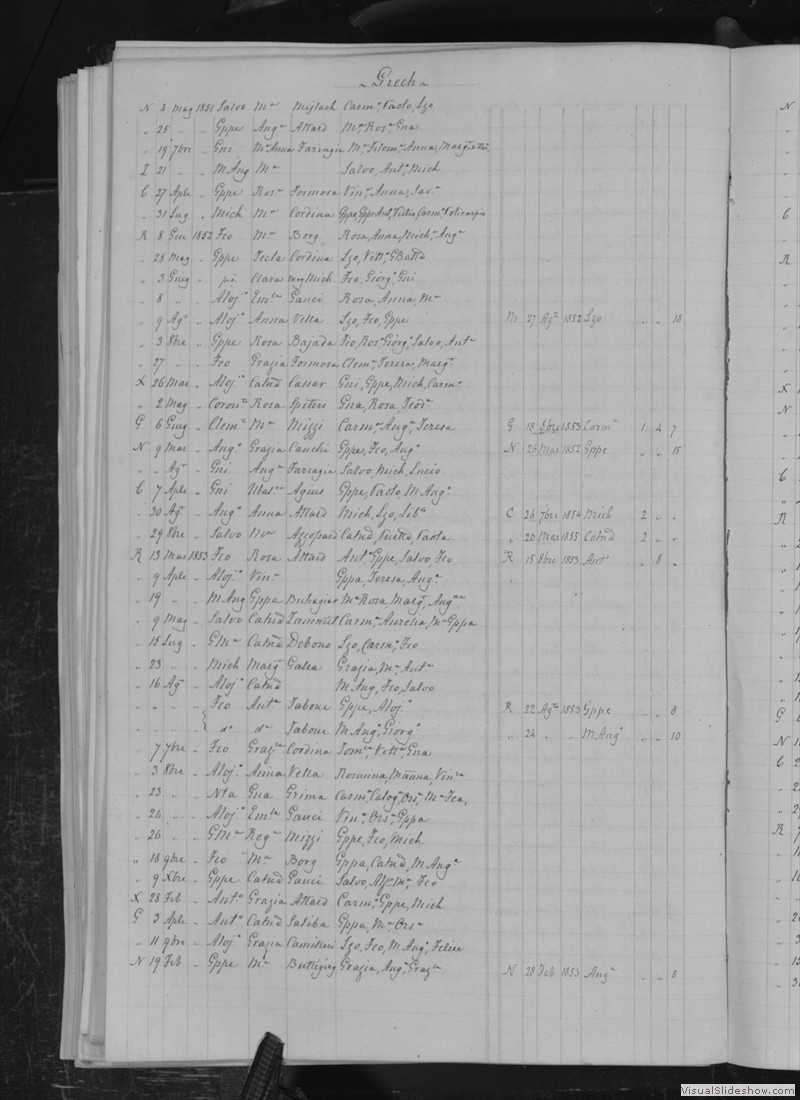 ~ Grech ~
N 4 Mag 1851 Salvo Mª Mifsach Carmº Paolo, Lzo
" 25 " " Gppe Angª Attard Mª, Rosª, Gna
" 19 7bre " Gni Mª Anna Farrugia Mª, Filomª, Anna, Margta
Z 21 " " M Ang Mª Salvo, Antº, Mich
C 27 Aple " Gppe Rosª Formosa Vinª, Anna, Savª
" 31 Lug " Mich Mª Cordina Gppe, Carmº
R 8 Gen 1852 Fco Mª Borg Rosa, Anna, Michª, Angª
" 28 Mag " Gppe Tecla Cordina Lzo, Vittª, GBatta
" 3 Giug " Clara Mich. Fco, Giorgº, Gni
" 8 " " Alojº Emlª Gauci Rosa, Anna, Mª
" 9 Agº " Alojº Anna Vella Lzo, Fco, Gppe M 27 Agº 1852 Lzo " " 18
" 3 8bre " Gppe Rosa Bajada Fco, Rosª, Giorgº, Salvo, Antº
" 27 " " Fco Grazia Formosa Clemª, Teresa, Margª
X 26 Mar " Alojº Catnª Cassar Gni, Gppe, Mich, Carmº
" 2 Mag " Coronto Rosa Spiteri Gna, Rosa, Teodª
G 6 Giug " Clemº Mª Mizzi Carmª, Angª, Teresa G 18 8bre 1853 Carmª 1 4 7
N 9 Mar " Angº Grazia Cauchi Gppe, Fco, Angº N 26 Mar 1852 Gppe " " 15
" " Agº " Gni Angª Farrugia Salvo, Mich, Lucio
C 7 Aple " Gni Agius Gppe, Paolo, M Angº
" 30 Agº " Angº Anna Attard Mich, Lzo, C 26 7bre 1854 Mich 2 " "
" 29 8bre " Salvo Azzopard Catnª, Paola " 20 Mar 1855 Catnª 2 " "
R 13 Mar 1853 Fco Rosa Attard Antº, Gppe, Salvo, Fco R 15 8bre 1853 Antº " 8 "
" 9 Aple " Alojº Vinª Gppa, Teresa, Angª
" 19 " " M Ang Gppa Buhagiar Mª Rosa, Margª, Angª
" 9 Mag " Salvo Catnª Zammit Carmª, Aurelia, Mª Gppa
" 15 Lug " GMª Catnª Debono Lzo, Carmº, Fco
" 23 " " Mich Margª Galea Grazia, Mª, Antª
" 16 Agº " Alojº Catnª M Ang, Fco, Salvo
" " " " Fco Antª Tabone Gppe, Alojº R 22 Agº 1853 Gppe " " 8
" " " " dº dª Tabone M Angº, Giorgº " 24 " " M Angº " " 10
" 7 7bre " Fco Grazla Cordina Tomsª, Vittª, Gna
" 3 8bre " Alojº Anna Vella Rosanna, Manna, Vinza
" 23 " " Nta Gna Grima Carmº, Calogº, Orsª, Mª Fca,
" 24 " " Alojº Emlª Gauci Vinª, Orsª, Gppa
" 26 " " GMª Regª Mizzi Gppe, Fco, Mich
" 18 9bre " Fco Mª Borg Gppa, Catnª, M Angª
" 9 Xbre " Gppe Catnª Gauci Salvo, Mª, Fco
X 28 Feb " Antº Grazia Attard Carmº, Gppe, Mich
G 3 Aple " Antº Catnª Saliba Gppa, Mª, Orsª
" 11 9bre " Alojº Grazia Camilleri Lzo, Fco, M Angº, Felice
N 19 Feb " Gppe Mª Buttigieg Grazia, Angª, Grazla N 28 Feb 1853 Angª " " 8
VisualSlideshow.com